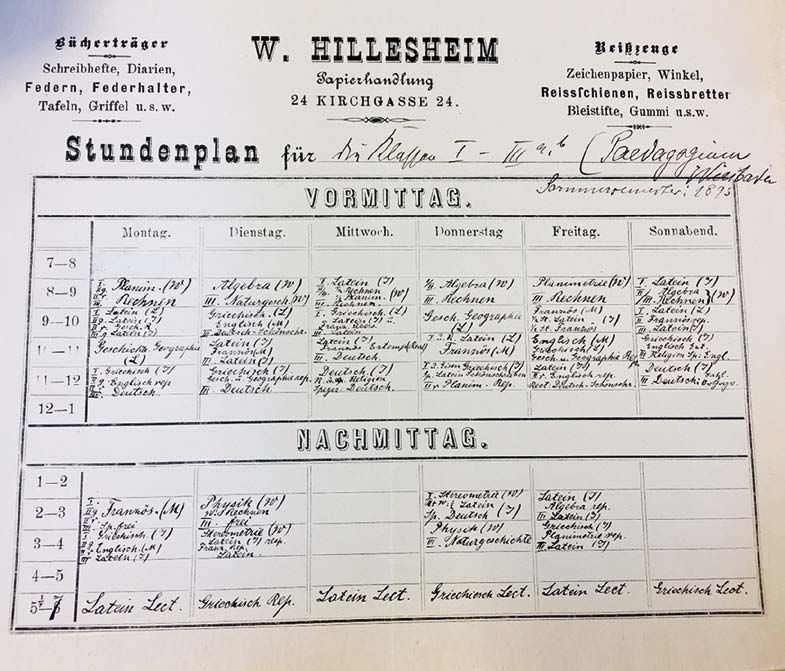 Bücherträger
Schreibhefte, Diarien,
Federn, Federhalter,
Tafeln, Griffel u.s.w.
W. HILLESHEIM
Papierhandlung
24 KIRCHGASSE 24.
Reißzeuge
Zeichenpapier, Winkel,
Reissschienen, Reissbretter
Bleistifte, Gummi u.s.w.
Stundenplan für die Klassen I – III a, b (Paedagogium
Wiesbaden
Sommersemester: 1895
VORMITTAG.
Montag. Dienstag. Mittwoch. Donnerstag Freitag. Sonnabend.
7—8
8—9
I. Planim. (W)
Rechnen
Algebra (W)
III. Naturgesch. (W)
I. Latein (J)
Rechnen
Planim. (W)
III. Rechnen
Algebra (W)
III. Rechnen
Planimetrie (W)
III. Rechnen
I. Latein (J)
Algebra (W)
III Rechnen
9—10
I. Latein (L)
IIg. Latein (J)
Gesch. L
III g Latein (J)
Griechisch. (L)
Englisch (M)
I. Griechisch. (L)
Latein (J)
III. Latein
Gesch. Geographie
(L)
Französ (M)
Latein (J)
Französ
I. Latein (L)
II. Latein (J)
11—11
Geschichte. Geographie
(L)
Latein (J)
Französ (M)
Latein (J)
Latein (L)
Französ.
III. Deutsch.
Latein (L)
Französ (M)
Englisch (M)
Griechisch
Gesch. u. Geographie Rep
Griechisch (J)
Englisch
III Religion Sp. Engl.
11—12
I. Griechisch (J)
Englisch rep
III. Deutsch.
Griechisch (J)
Gesch. u. Geographie rep.
III. Deutsch
Deutsch (J)
Religion
Deutsch.
Griechisch (J)
Latein
II r Planim. Rep.
Latein (J)
II r. Englisch rep.
Deutsch.
Deutsch (J)
III Deutsch
12—1
NACHMITTAG.
1—2
2—3
I.
II g Französ. (M)
II r.
III. Sp. frei
Physik (W)
Rechnen
III. frei
I. Stereometrie (W)
Latein
Sp. Deutsch (J)
Latein (J)
Algebra rep.
III Latein (J)
3—4
I Griechisch (J)
Englisch (M)
III Latein (J)
Stereometrie (W)
Latein (J) rep.
Franz. Rep.
Latein.
Physik (W)
III. Naturgeschichte
Griechisch (J)
Planimetrie rep.
III. Latein (J)
4—5
5½–7
Latein Lect. Griechisch Rep. Latein Lect. Griechisch Lect. Latein Lect. Griechisch Lect.